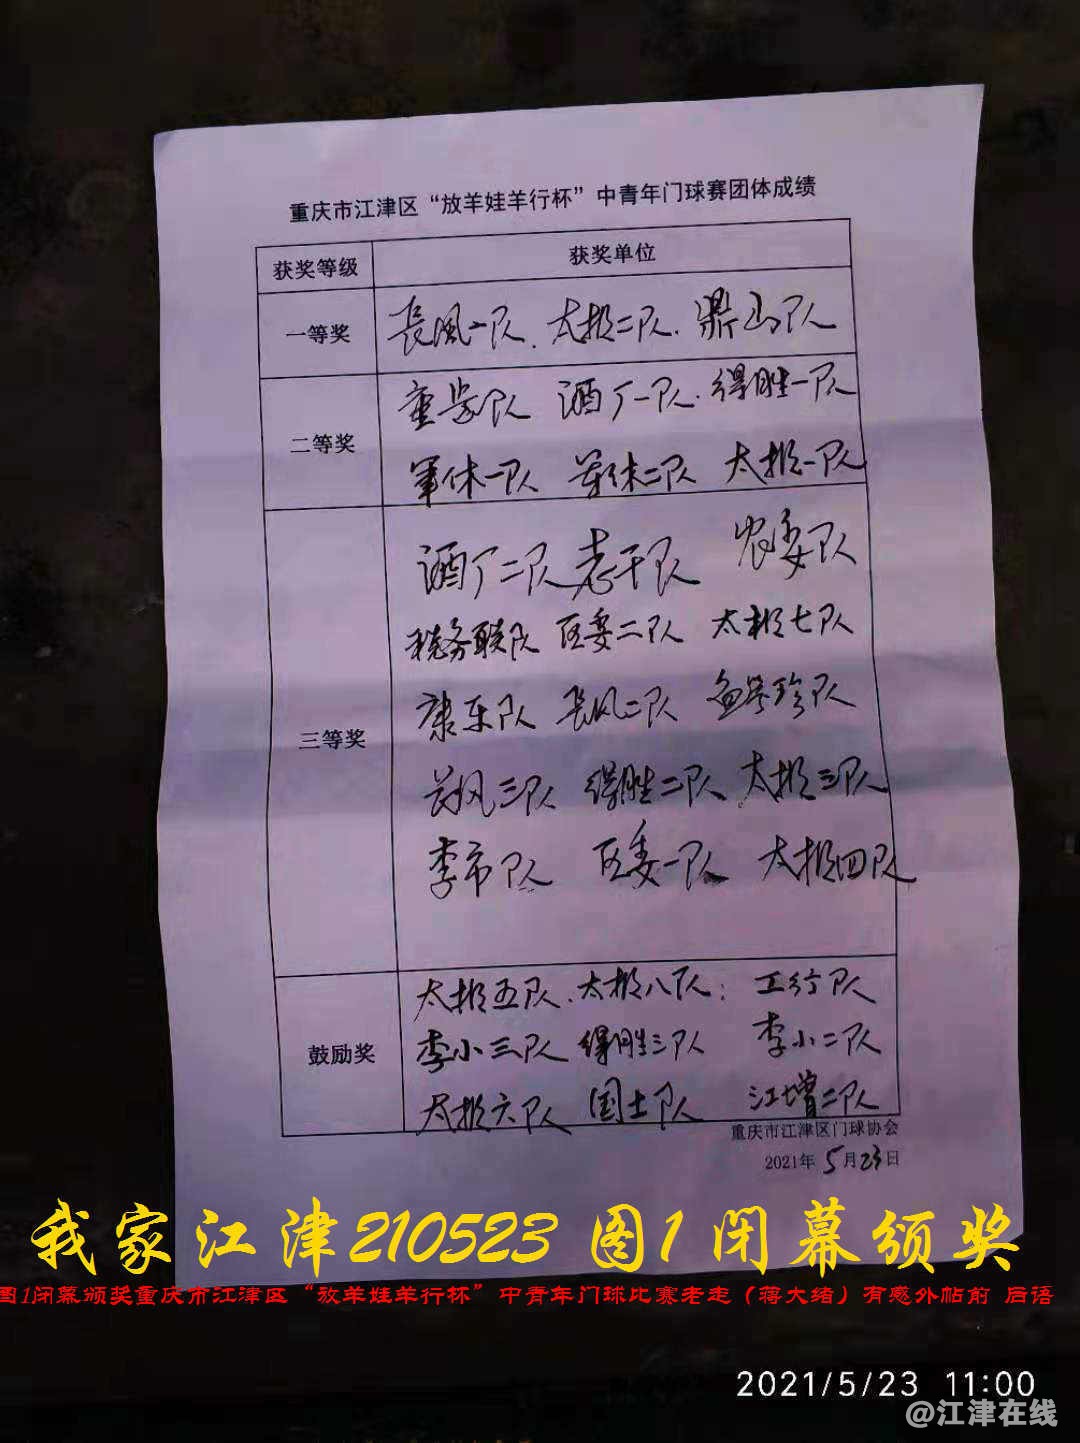 重庆市江津区“放羊娃羊行杯”中青年门球赛团体成绩
获奖等级 获奖单位
一等奖 長風一队、太极二队、鼎山队
二等奖
重齿队 酒厂一队、得胜一队
军休一队 军休二队 太极一队
三等奖
酒厂二队 老干队 农委队
税务联队 区委二队 太极七队
康乐队 長风二队 队
长风三队 得胜二队 太极三队
李市队 区委一队 太极四队
鼓励奖
太极五队、太极八队; 工行队
李小三队 得胜三队 李小二队
太极六队 国土队 江增二队
重庆市江津区门球协会
2021年5月23日
我家江津210523 图1闭幕颁奖
图1闭幕颁奖重庆市江津区“放羊娃羊行杯”中青年门球比赛老走(蒋大绪)有感外帖前 后语
2021/5/23 11:00
@江津在线